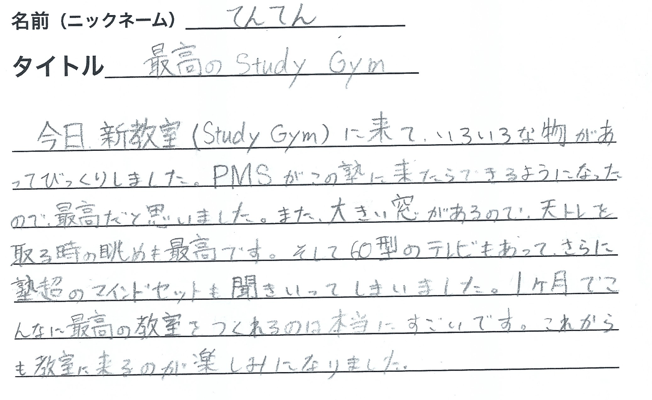 名前（ニックネーム） てんてん
タイトル 最高の Study Gym
今日、新教室（Study Gym）に来て、いろいろな物があ
ってびっくりしました。PMSがこの塾に来たらできるようになった
ので、最高だと思いました。また、大きい窓があるので、天トレを
取る時の眺めも最高です。そして60型のテレビもあって、さらに
塾超のマインドセットも聞きいってしまいました。1ヶ月でこ
んなに最高の教室をつくれるのは本当にすごいです。これから
も教室に来るのが楽しみになりました。